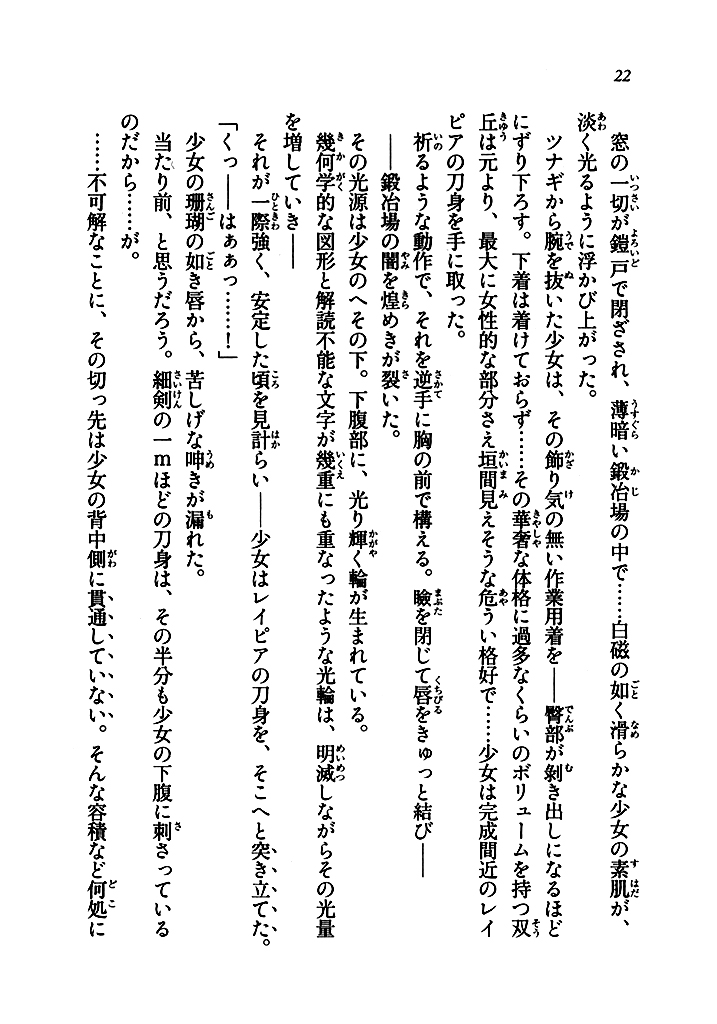 22
窓の一切が鎧戸で閉ざされ、薄暗い鍛冶場の中で……白磁の如く滑らかな少女の素肌が、
淡く光るように浮かび上がった。
ツナギから腕を抜いた少女は、その飾り気の無い作業用着を――臀部が剝き出しになるほど
にずり下ろす。下着は着けておらず……その華奢な体格に過多なくらいのボリュームを持つ双
丘は元より、最大に女性的な部分さえ垣間見えそうな危うい格好で……少女は完成間近のレイ
ピアの刀身を手に取った。
祈るような動作で、それを逆手に胸の前で構える。瞼を閉じて唇をきゅっと結び――
――鍛冶場の闇を煌めきが裂いた。
その光源は少女のへその下。下腹部に、光り輝く輪が生まれている。
幾何学的な図形と解読不能な文字が幾重にも重なったような光輪は、明滅しながらその光量
を増していき――
それが一際強く、安定した頃を見計らい――少女はレイピアの刀身を、そこへと突き立てた。
「くっ――はぁぁっ……！」
少女の珊瑚の如き唇から、苦しげな呻きが漏れた。
当たり前、と思うだろう。細剣の一mほどの刀身は、その半分も少女の下腹に刺さっている
のだから……が。
……不可解なことに、その切っ先は少女の背中側に貫通していない。そんな容積など何処に